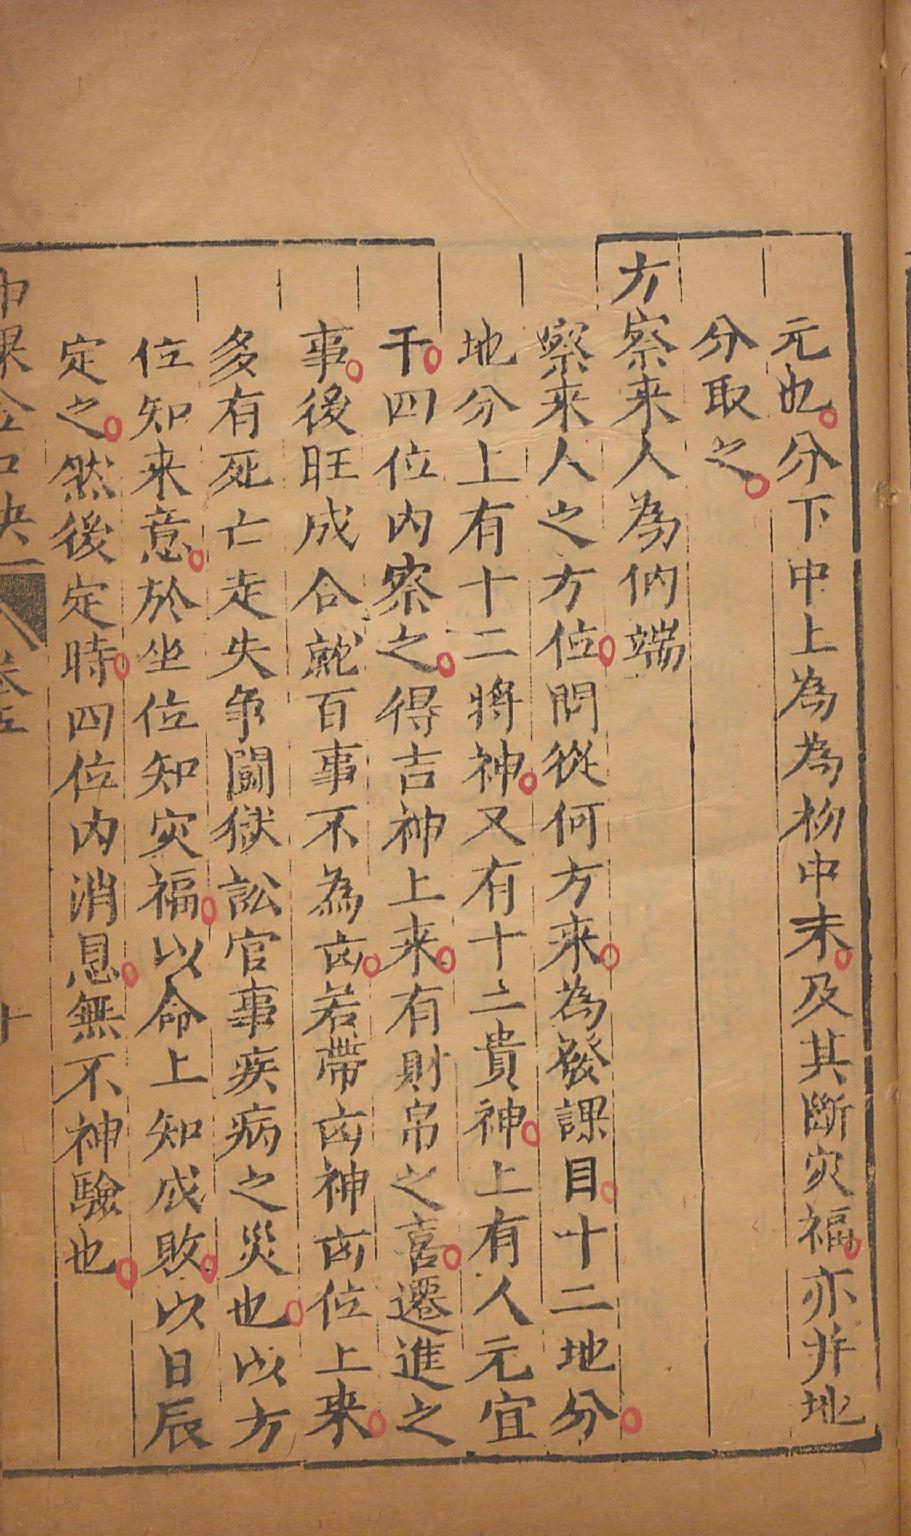 元也分下中上為為初中末及其斷灾福亦并地
分取之
方察来人為伪端
察来人之方位問從何方来為發課目十二地分
地分上有十二將神又有十二貴神上有人元宜
干四位内察之得吉神上来有財帛之喜遷進之
事後旺成合就百事不為凶若帶凶神凶位上来
多有死亡走失争闘獄訟官事疾病之災也以方
位知来意於坐位知灾福以命上知成敗以日辰
定之然後定時四位内消息無不神驗也
課金口訣 卷五 十